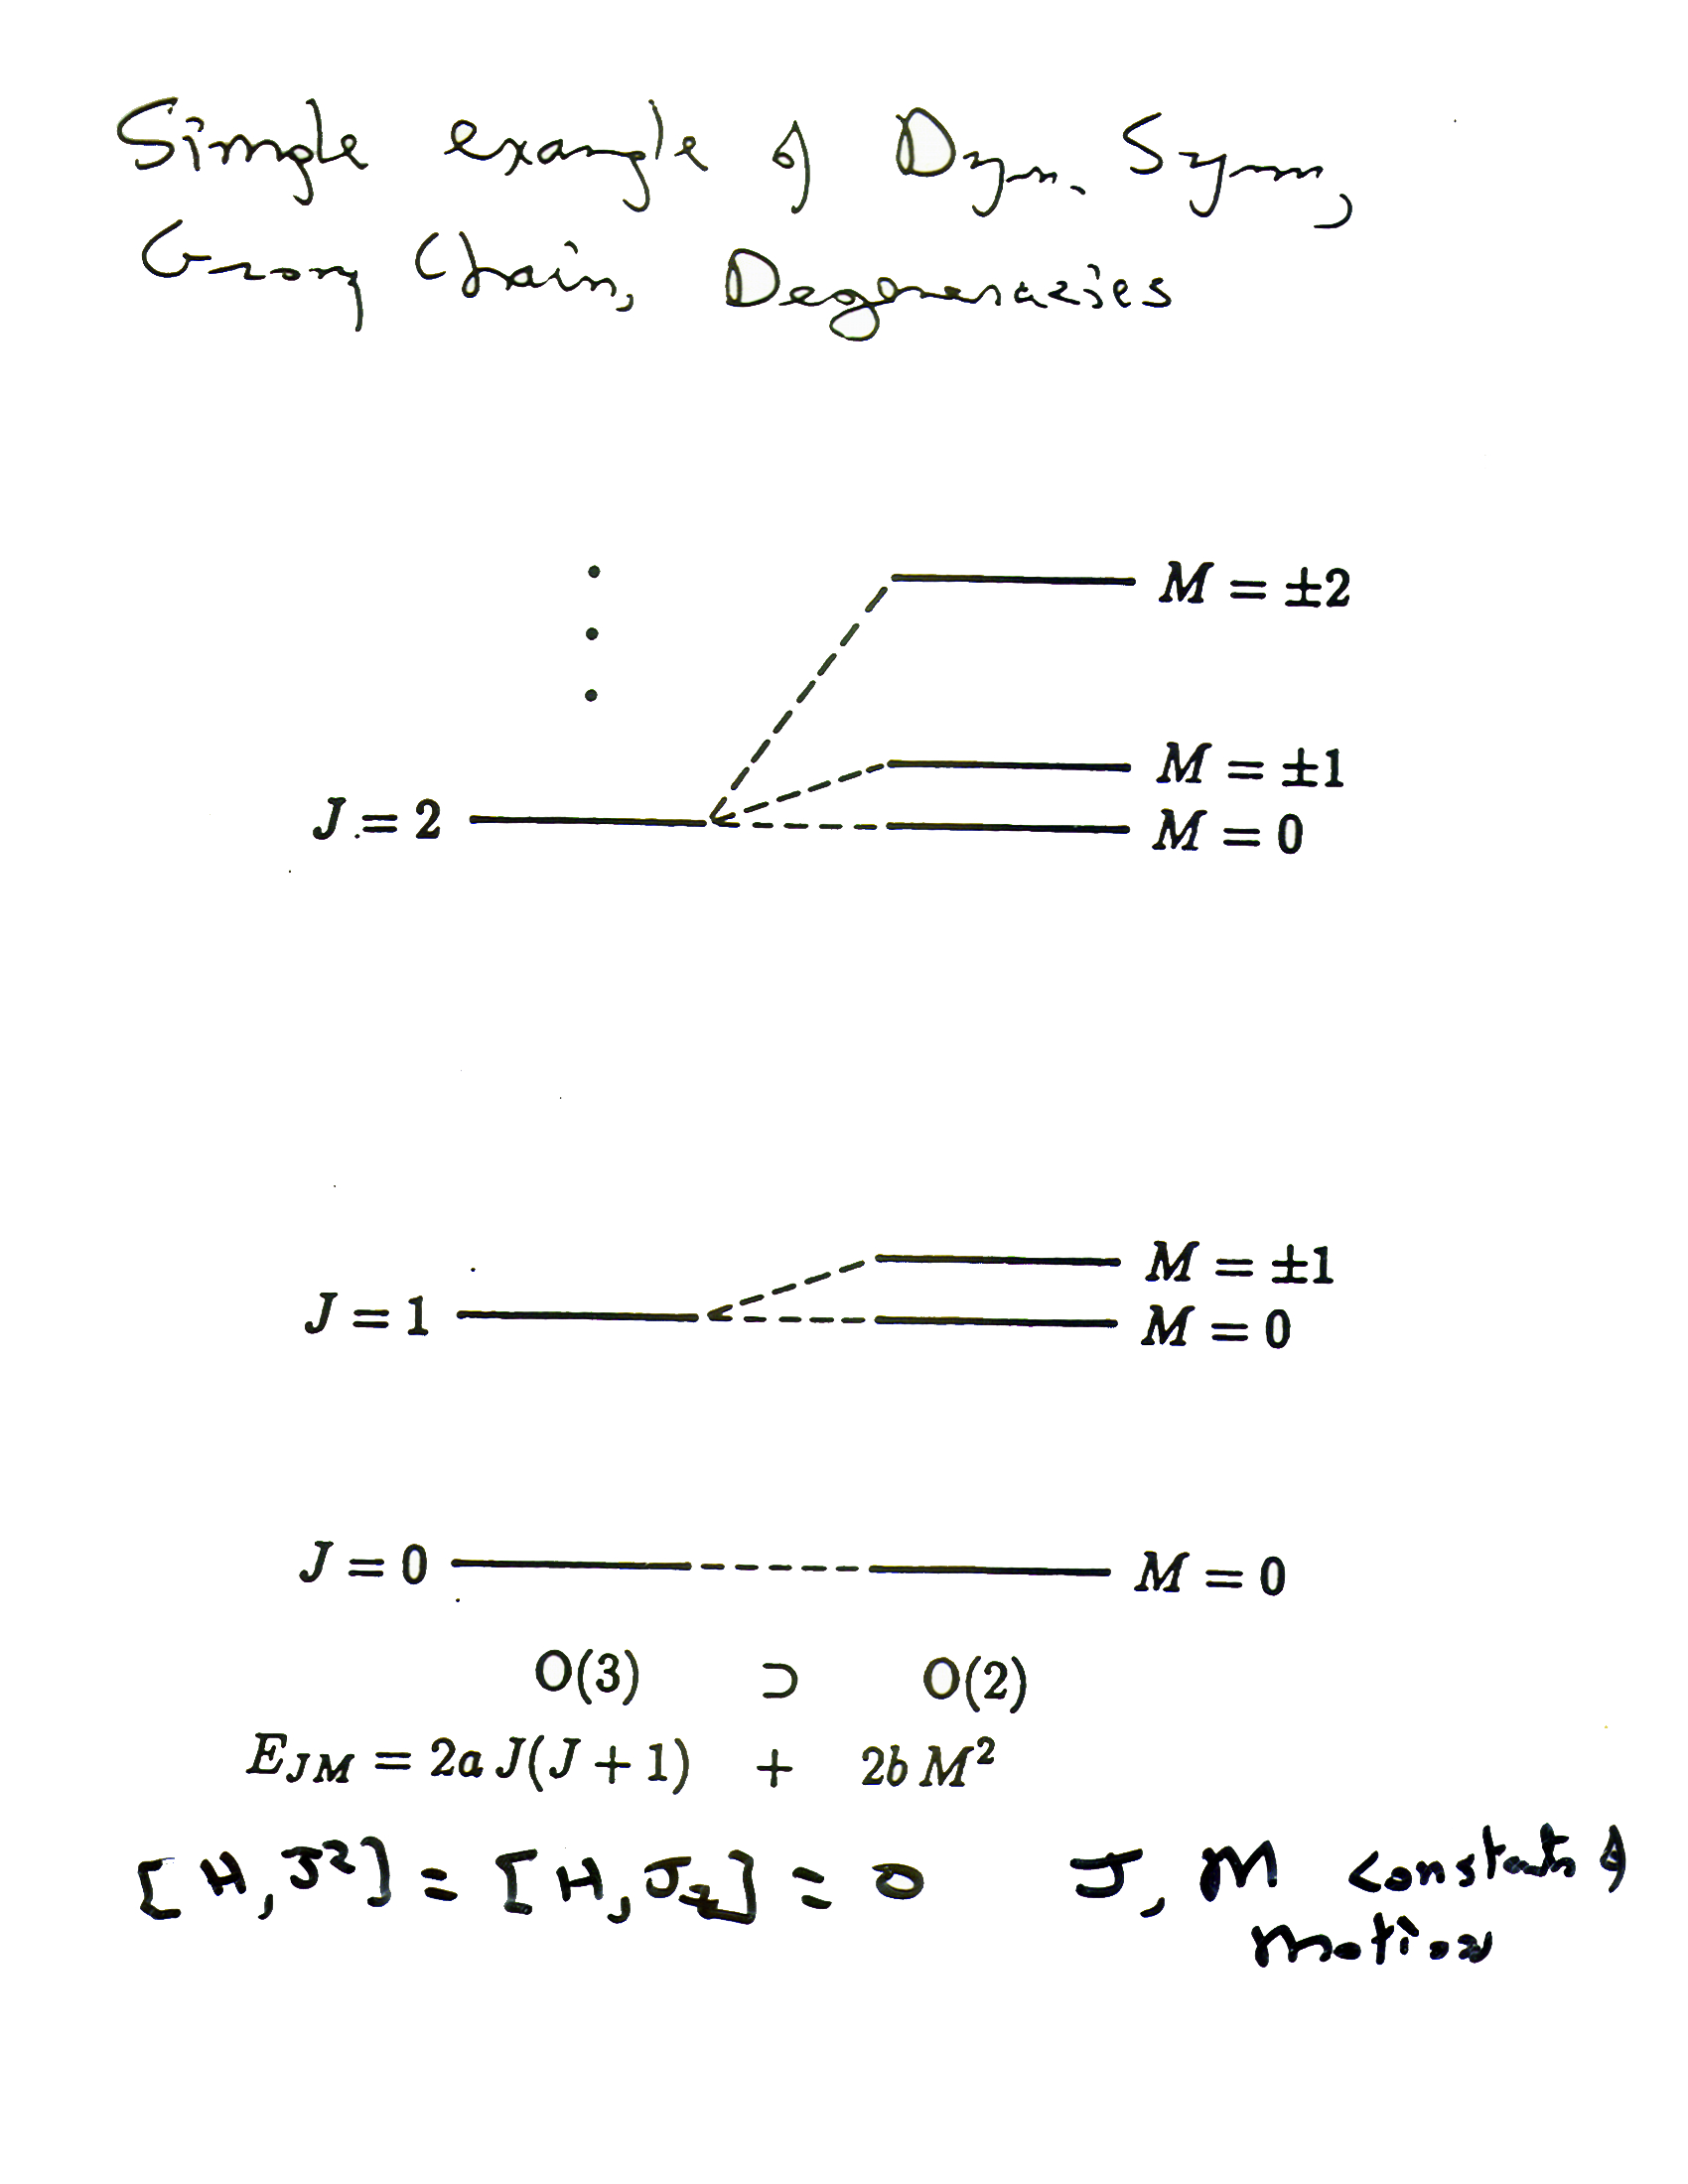 Simple example of Dyn. Symm,
Group Chain, Degeneracies
M = ±2
M = ±1
J = 2
M = 0
M = ±1
J = 1
M = 0
J = 0
M = 0
O(3) ⊃ O(2)
E_{JM} = 2a J(J + 1) + 2b M²
[H, J²] = [H, J_z] = 0 J, M constants of
motion